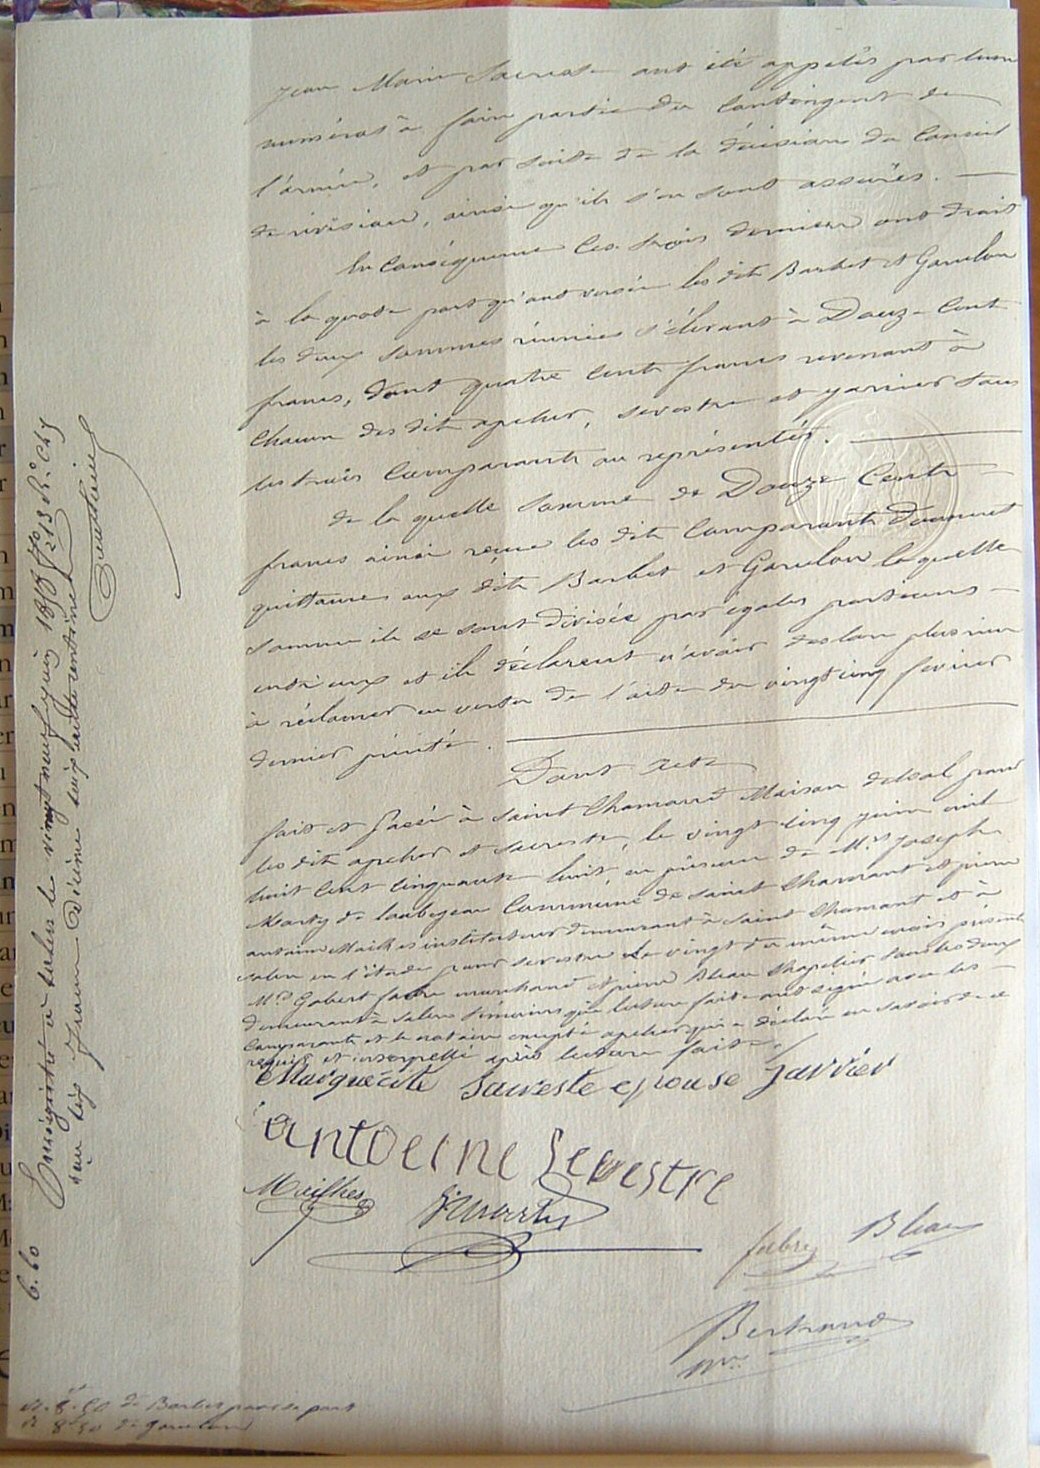 Jean Marie Sevestre ont été appelés par leurs
numéros à faire partie du contingent de
l'armée, et par suite de la décision du Conseil
de révision, ainsi qu'ils s'en sont assurés. —
En Conséquence les trois derniers ont droit
à la quote part qu'ont versée les dits Barbet et Garelou
les deux sommes réunies s'élevant à Douze Cent
francs, dont quatre cents francs revenant à
Chacun des dits apcher, sevestre et garrier tous
les trois Comparants ou représentés.
de la quelle somme de Douze Cents
francs ainsi reçue les dits Comparants donnent
quittance aux dits Barbet et Garelou laquelle
somme ils se sont divisée par égales portions
entr'eux et ils déclarent n'avoir plus rien
à réclamer en vertu de l'acte du vingt cinq fevrier
dernier précité.
Dont acte
fait et passé à Saint Chamand Maison pour
les dits apcher et sevestre, le vingt cinq juin mil
huit Cent Cinquante huit, en présence de Mrs Joseph
Marty de Commune de Saint Chamant et pierre
antoine Mailhes instituteur demeurant à Saint Chamant et à
salers en l'étude pour sevestre le vingt du même mois présents
Mrs Gabert fabre marchand et pierre Bleau Chapelier tous les deux
demeurant à Salers témoins qui lecture faite ont signé avec les
Comparants et le notaire excepté apcher qui a déclaré ne savoir de ce
requis et interpellé après lecture faite.
Marguerite Saveste epouse Jarrier
antoeine Sevestre
Mailhes Marty
fabre Bleau
Bertrand
Nre
Enregistré à Salers le vingt neuf juin 1858 fo 213 Ro Ce 5
reçu six francs Décime soixante centimes
6.60
de Barbet pour sa part
de Garelou